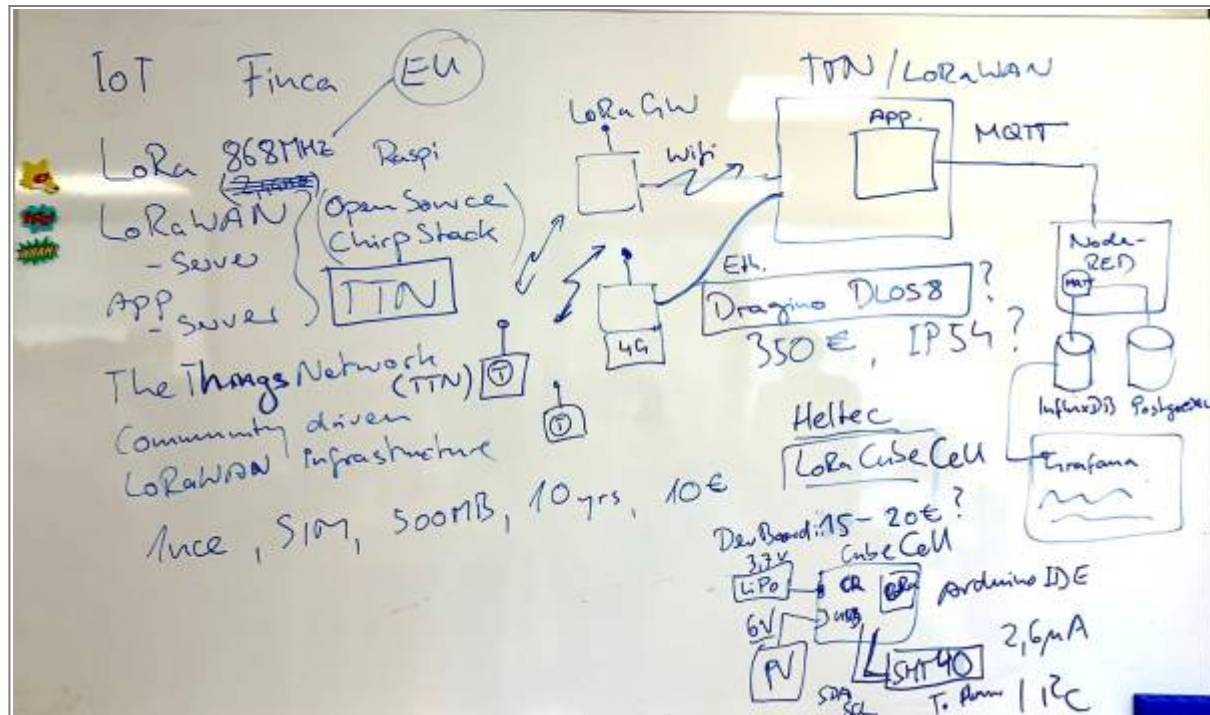 IoT Finca EU
LoRa 868MHz Raspi
LoRaWAN
- Server
App
- Server
(Open Source
ChirpStack
TTN
The Things Network
(TTN)
Community driven
LoRaWAN infrastructure
1nce, SIM, 500MB, 10 yrs, 10€
LoRa GW
Wifi
T
T
4G
Eth.
TTN/LoRaWAN
App.
MQTT
Dragino DLOS8 ?
350 €, IP54 ?
Node-
RED
InfluxDB
Grafana
Heltec
LoRa CubeCell
DevBoard: 15-20€ ?
CubeCell
3,7V
LiPo
LoRa
USB
6V
PV
Arduino IDE
SHT40
2,6µA
SDA
SCL
I²C